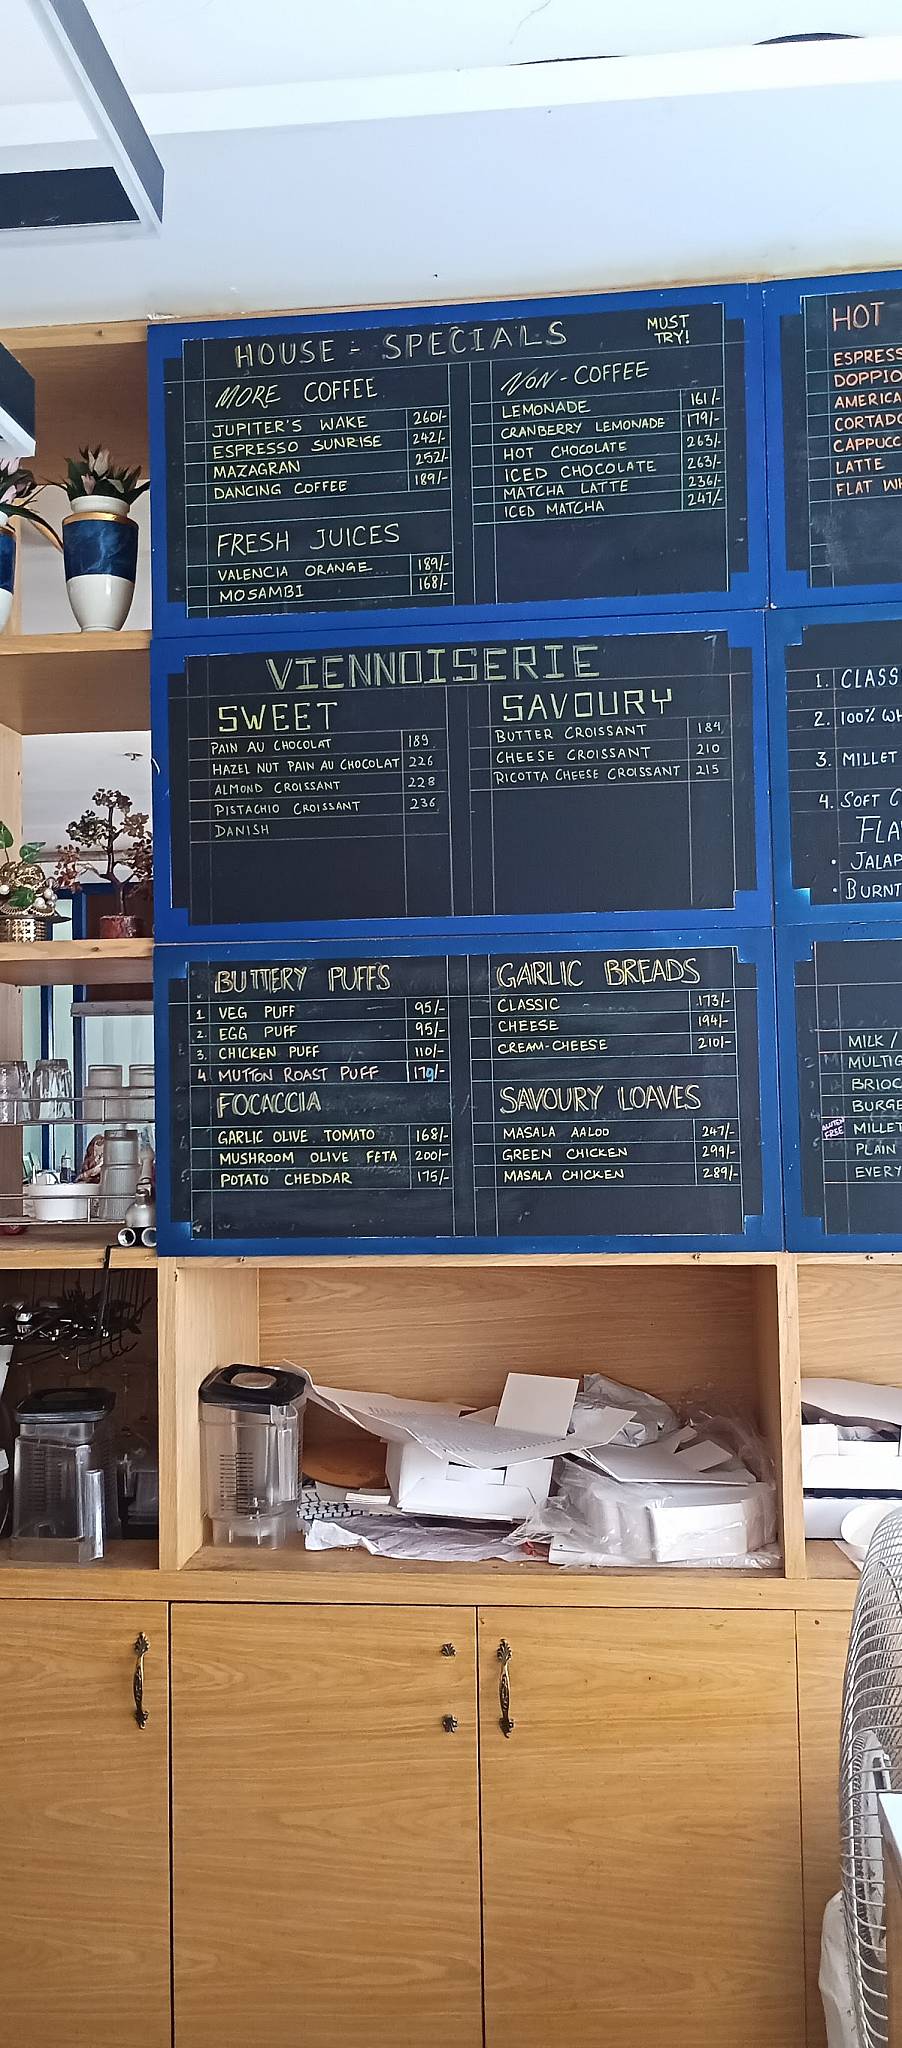 HOUSE - SPECIALS
MUST
TRY!
MORE COFFEE
JUPITER'S WAKE 260/-
ESPRESSO SUNRISE 242/-
MAZAGRAN 252/-
DANCING COFFEE 189/-
FRESH JUICES
VALENCIA ORANGE 189/-
MOSAMBI 168/-
NON-COFFEE
LEMONADE 161/-
CRANBERRY LEMONADE 179/-
HOT CHOCOLATE 263/-
ICED CHOCOLATE 263/-
MATCHA LATTE 236/-
ICED MATCHA 247/-
VIENNOISERIE
SWEET
PAIN AU CHOCOLAT 189
HAZEL NUT PAIN AU CHOCOLAT 226
ALMOND CROISSANT 228
PISTACHIO CROISSANT 236
DANISH
SAVOURY
BUTTER CROISSANT 184
CHEESE CROISSANT 210
RICOTTA CHEESE CROISSANT 215
BUTTERY PUFFS
1 VEG PUFF 95/-
2. EGG PUFF 95/-
3. CHICKEN PUFF 110/-
4 MUTTON ROAST PUFF 179/-
FOCACCIA
GARLIC OLIVE TOMATO 168/-
MUSHROOM OLIVE FETA 200/-
POTATO CHEDDAR 175/-
GARLIC BREADS
CLASSIC - 173/-
CHEESE 194/-
CREAM-CHEESE 210/-
SAVOURY LOAVES
MASALA AALOO 247/-
GREEN CHICKEN 299/-
MASALA CHICKEN 289/-
HOT
ESPRESS
DOPPIO
AMERICA
CORTADO
CAPPUCC
LATTE
FLAT WH
1. CLASS
2. 100% WH
3. MILLET
4. SOFT C
FLA
• JALAP
• BURNT
MILK /
MULTIG
BRIOC
BURGE
GLUTEN FREE MILLET
PLAIN
EVERY